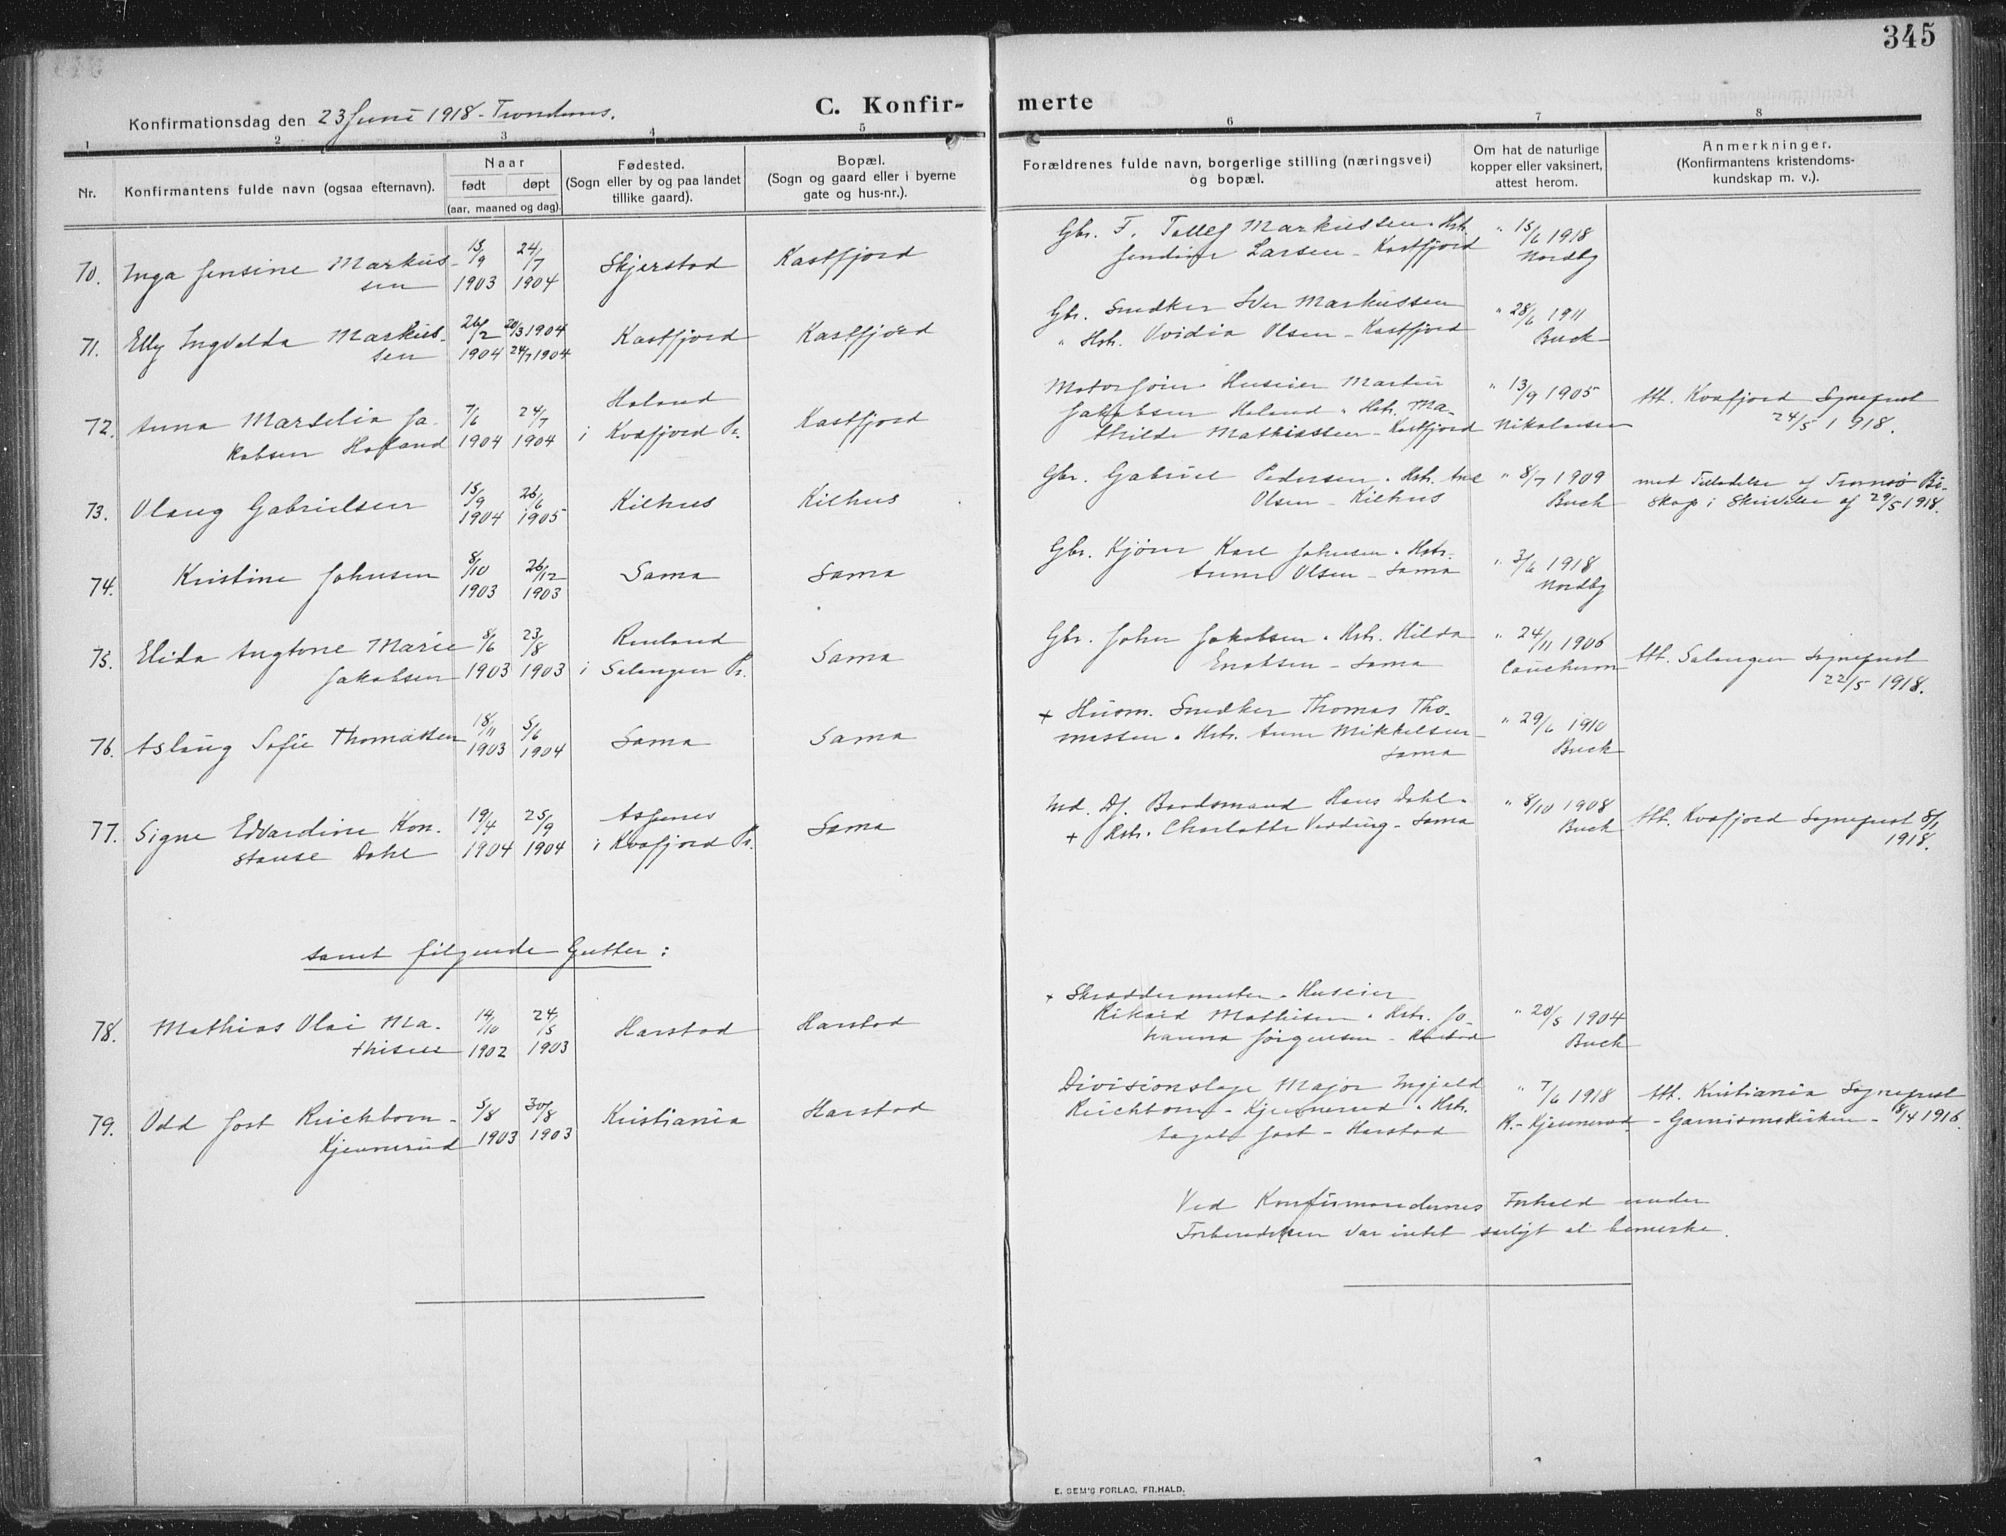 345
C. Konfir-
merte
Konfirmationsdag den 23 Juni 1918 - Trondenes.
1 2 3 4 5 6 7 8
Nr.
Konfirmantens fulde navn (ogsaa efternavn).
Naar
født døpt
(aar, maaned og dag)
Fødested.
(Sogn eller by og paa landet
tillike gaard).
Bopæl.
(Sogn og gaard eller i byerne
gate og hus-nr.).
Forældrenes fulde navn, borgerlige stilling (næringsvei)
og bopæl.
Om hat de naturlige
kopper eller vaksinert,
attest herom.
Anmerkninger.
(Konfirmantens kristendoms-
kundskap m. v.).
70. Inga Jensine Markus-
sen
15/9 1903 24/7 1904
Skjerstad
Kastfjord
Gbr. F. Tollef Markussen. Hstr.
Jendine Larsen - Kastfjord
" 15/6 1918
Nordby
71. Elly Ingvalda Markus-
sen
26/2 1904 20/3 1904
24/7 1904
Kastfjord
Kastfjord
Gbr. Snedker Iver Markussen
" Hstr. Ovidia Olsen - Kastfjord
" 28/6 1911
Buck
72. Anna Marselia Ja-
kobsen Haland
7/6 1904 24/7 1904
Haland
i Kvæfjord Pr.
Kastfjord
Huseier Martin
Jakobsen Haland . Hstr. Ma-
thilde Mathiassen - Kastfjord
" 13/9 1905
Nikolaisen
Att. Kvæfjord Sognepræst
24/5 1918.
73. Olaug Gabrielsen
15/9 1904 26/6 1905
Kilhus
Kilhus
Gbr. Gabriel Pedersen . Hstr. Ane
Olsen - Kilhus
" 8/7 1909
Buck
med Tilladelse af Tromsø Bi-
skop i Skrivelse af 29/5 1918.
74. Kristine Johnsen
8/10 1903 26/12 1903
Sama
Sama
Gbr. Kjører Karl Johnsen . Hstr.
Anne Olsen - Sama
" 3/6 1918
Nordby
75. Elida Angtone Marie
Jakobsen
8/6 1903 23/8 1903
Renland
i Salangen Pr.
Sama
Gbr. Johan Jakobsen . Hstr. Hilda
Enoksen - Sama
" 24/11 1906
Att. Salangen Sognepræst
22/5 1918.
76. Aslaug Sofie Thomassen
18/11 1903 5/6 1904
Sama
Sama
+ Husm. Snedker Thomas Tho-
massen . Hstr. Anne Mikkelsen
Sama
" 29/6 1910
Buck
77. Signe Edvardine Kon-
stanse Dahl
19/4 1904 25/9 1904
Aspenes
i Kvæfjord Pr.
Sama
Ind. Df. Baadsmand Hans Dahl .
+ Hstr. Charlotte Vedding - Sama
" 8/10 1908
Buck
Att. Kvæfjord Sognepræst
1918.
samt følgende Gutter :
78. Mathias Olai Ma-
thisen
14/10 1902 24/5 1903
Harstad
Harstad
+ Skræddermester . Huseier
Rikard Mathisen . Hstr. Jo-
hanna Jørgensen - Harstad
" 20/5 1904
Buck
79. Odd Jost Reichborn-
Kjennerud
5/8 1903 30/8 1903
Kristiania
Harstad
Divisionslæge Major Ingjald
Reichborn - Kjennerud . Hstr.
Jost - Harstad
" 7/6 1918
R.- Kjennerud
Att. Kristiania Sognepræst
- Garnisonskirken - 18/4 1916.
Ved Konfirmandernes Forhold under
Forberedelsen var intet særligt at bemerke.
E. SEM'S FORLAG, FR.HALD.